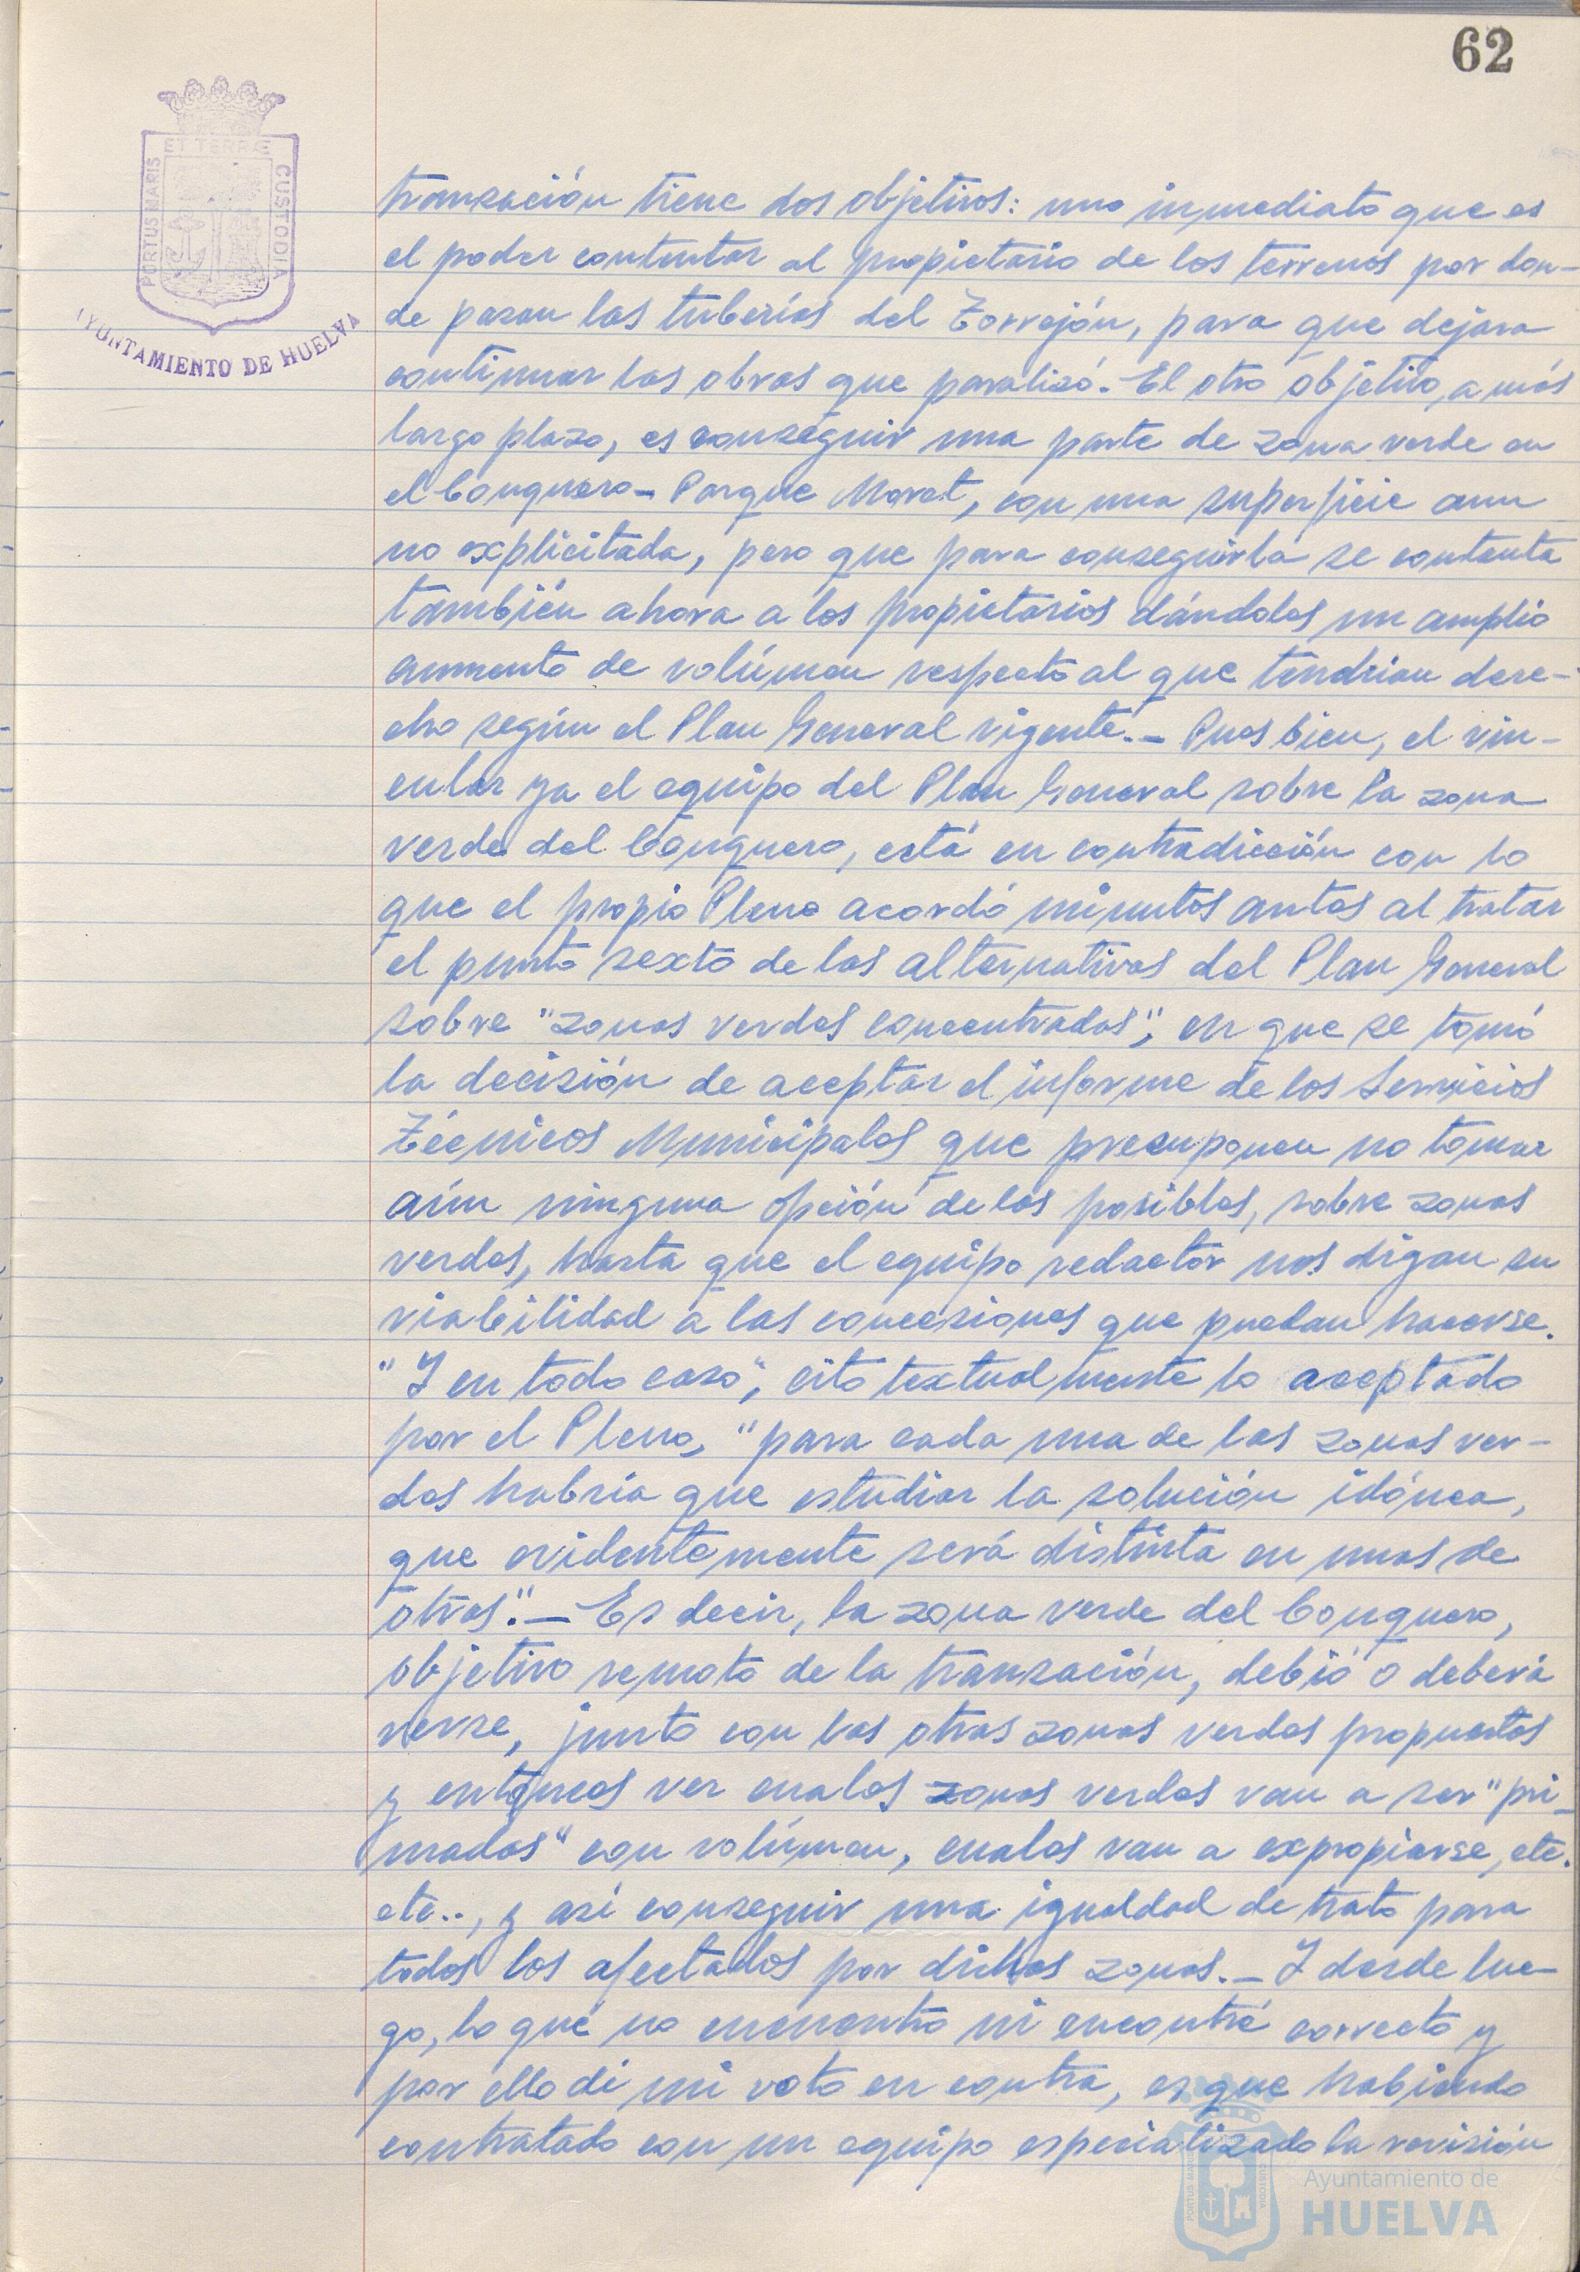 62
ET TERRÆ
PORTUS MARIS
CUSTODIA
AYUNTAMIENTO DE HUELVA
transación tiene dos objetivos: uno inmediato que es
el poder contentar al propietario de los terrenos por don-
de pasan las tuberías del Torrejón, para que dejara
continuar las obras que paralizó. El otro objetivo, a más
largo plazo, es conseguir una parte de zona verde en
el Conquero - Parque Moret, con una superficie aun
no explicitada, pero que para conseguirla se contenta
también ahora a los propietarios dándoles un amplio
aumento de volúmen respecto al que tendrian dere-
cho según el Plan General vigente.- Pues bien, el vin-
cular ya el equipo del Plan General sobre la zona
verde del Conquero, está en contradicción con lo
que el propio Pleno acordó minutos antes al tratar
el punto sexto de las alternativas del Plan General
sobre "zonas verdes concentradas", en que se tomó
la decisión de aceptar el informe de los Servicios
Técnicos Municipales que presuponen no tomar
aún ninguna opción de las posibles, sobre zonas
verdes, hasta que el equipo redactor nos digan su
viabilidad a las concesiones que puedan hacerse.
"Y en todo caso", cito textualmente lo aceptado
por el Pleno, "para cada una de las zonas ver-
des habria que estudiar la solución idónea,
que evidentemente será distinta en unas de
otras".- Es decir, la zona verde del Conquero,
objetivo remoto de la transación, debió o deberá
verse, junto con las otras zonas verdes propuestas
y entonces ver cuales zonas verdes van a ser "pri-
madas" con volúmen, cuales van a expropiarse, etc.
etc.., y asi conseguir una igualdad de trato para
todos los afectados por dichas zonas.- Y desde lue-
go, lo qué no encuentro ni encontré correcto y
por ello di mi voto en contra, es que habiendo
contratado con un equipo especializado la revisión
PORTUS MARIS
CUSTODIA
Ayuntamiento de
HUELVA